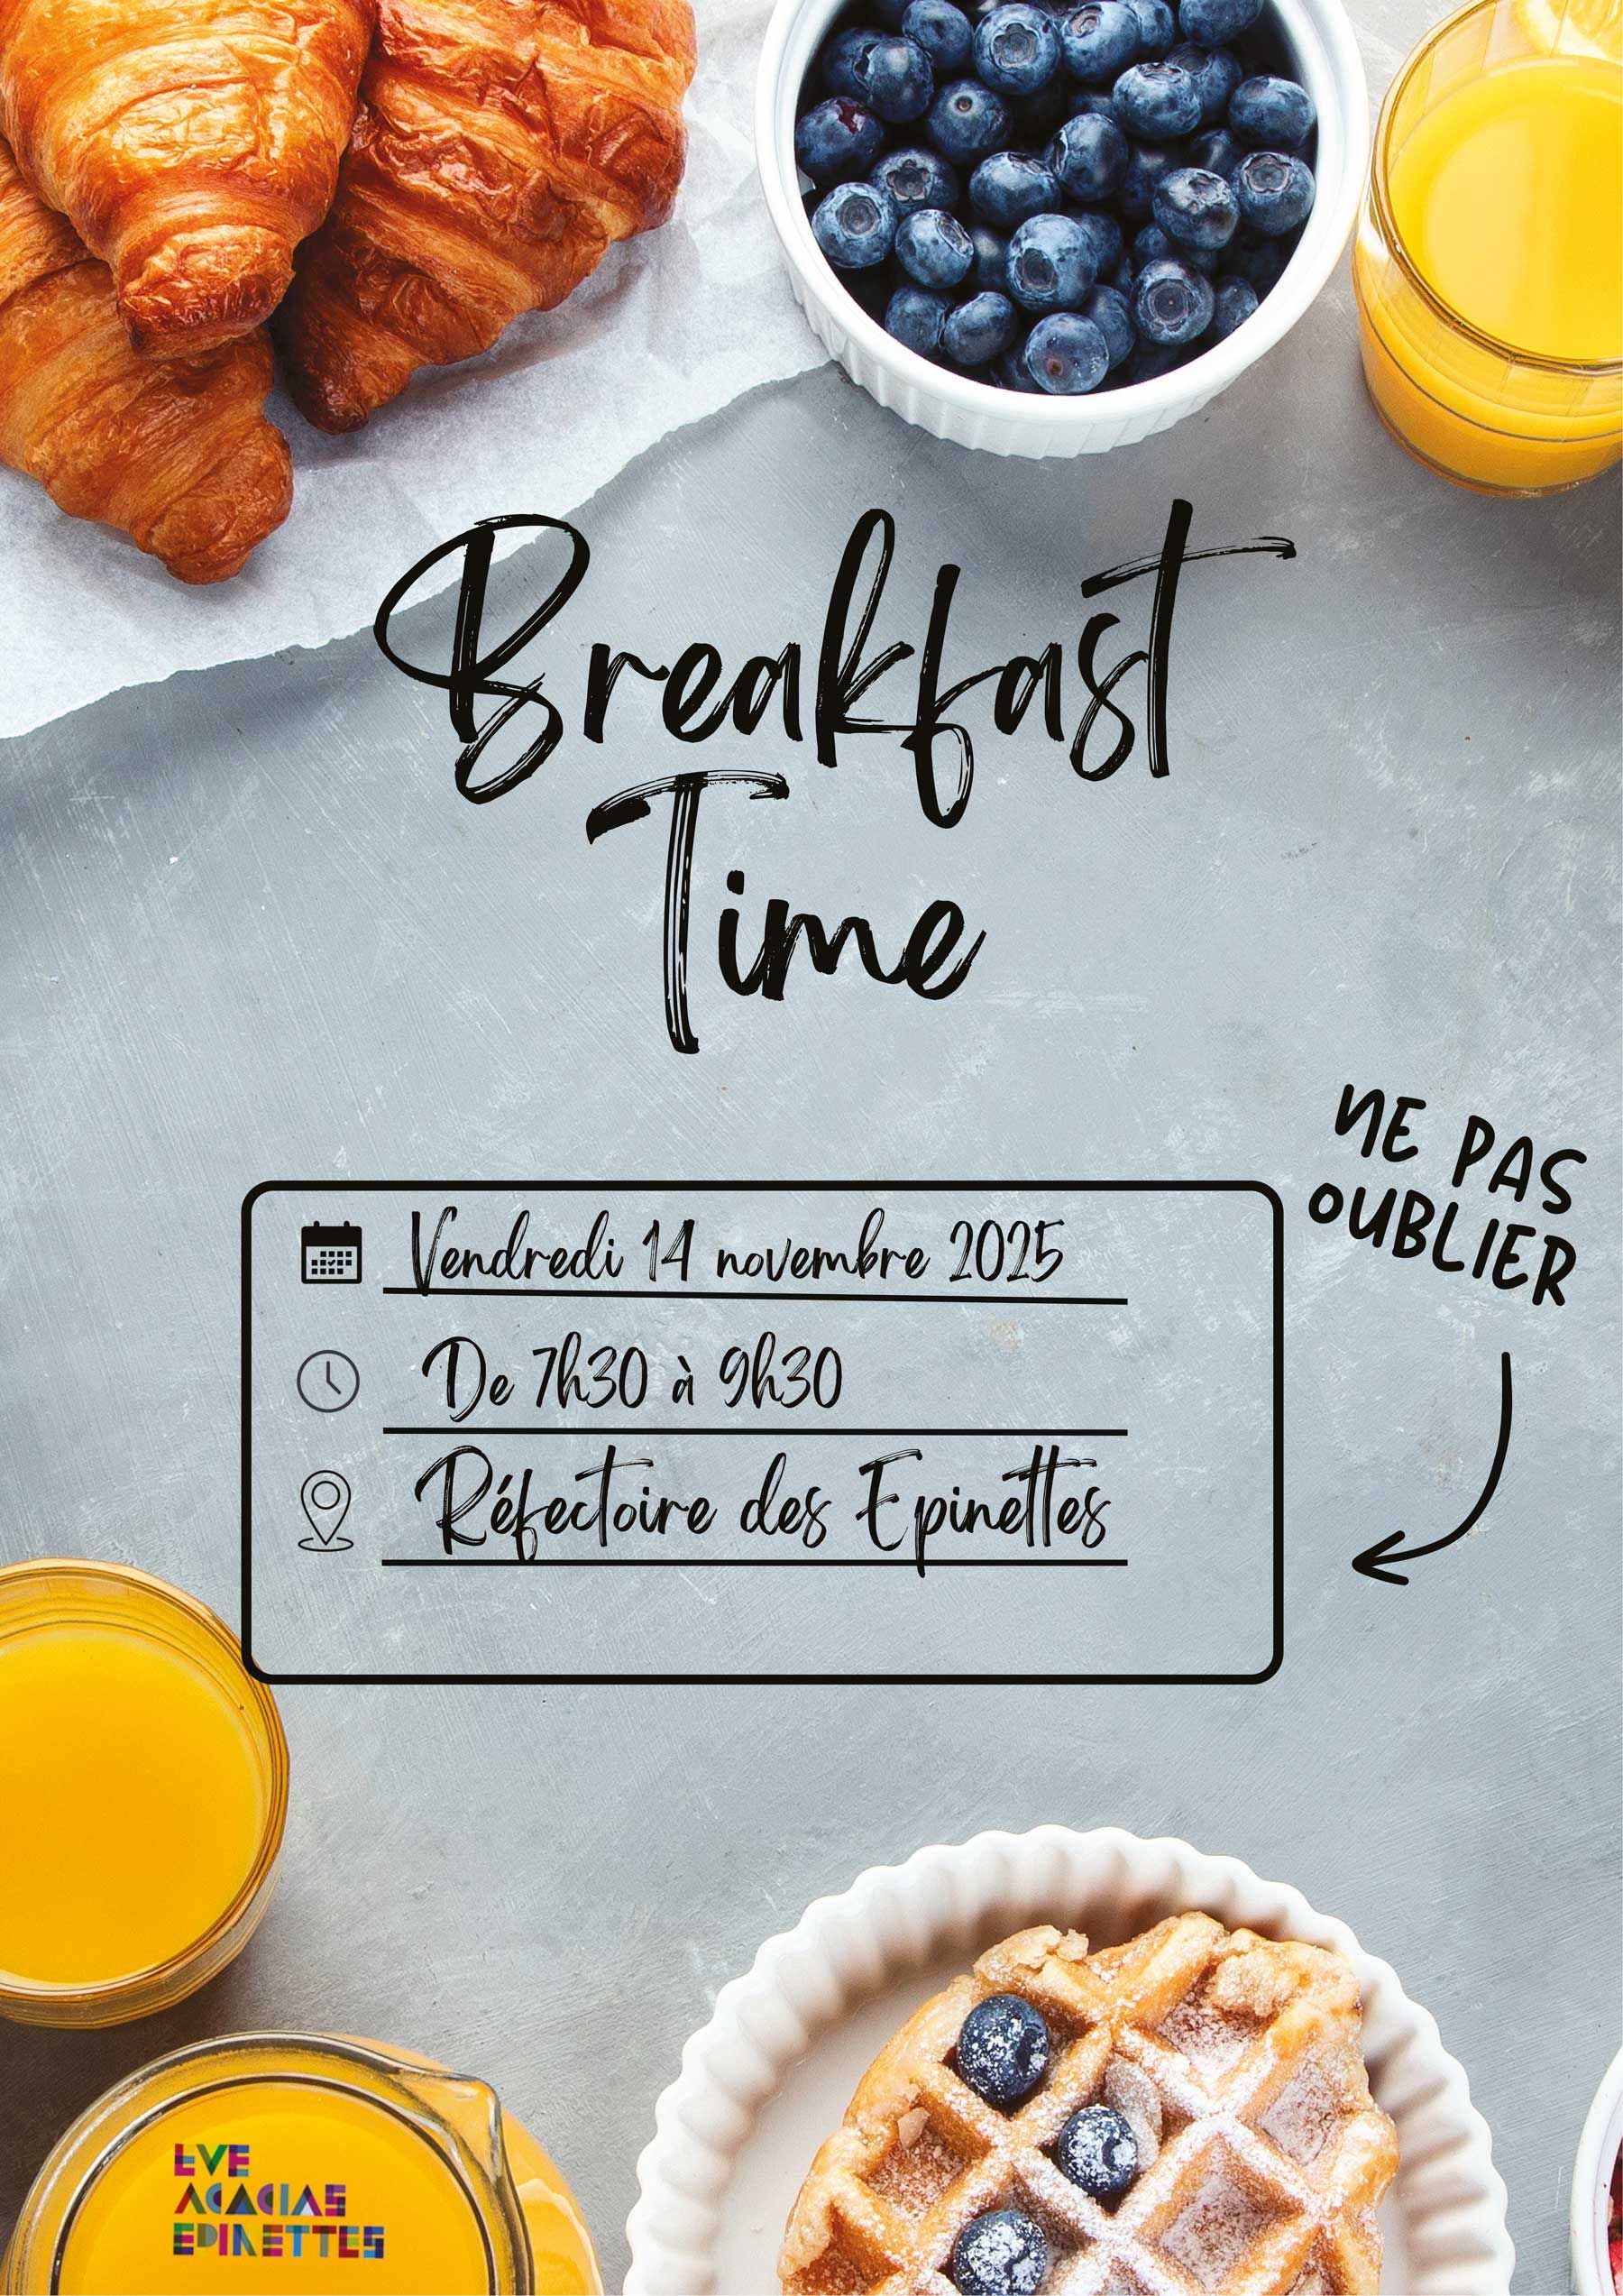 Breakfast
Time
NE PAS
OUBLIER
Vendredi 14 novembre 2025
De 7h30 à 9h30
Réfectoire des Epinettes
EVE
ACACIAS
EPINETTES